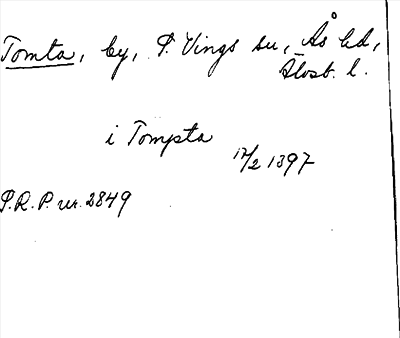 Tomta, by, S. Vings sn, Ås hd,
Älvsb. l.
i Tompsta
17/2 1397
S.R.P. nr. 2849